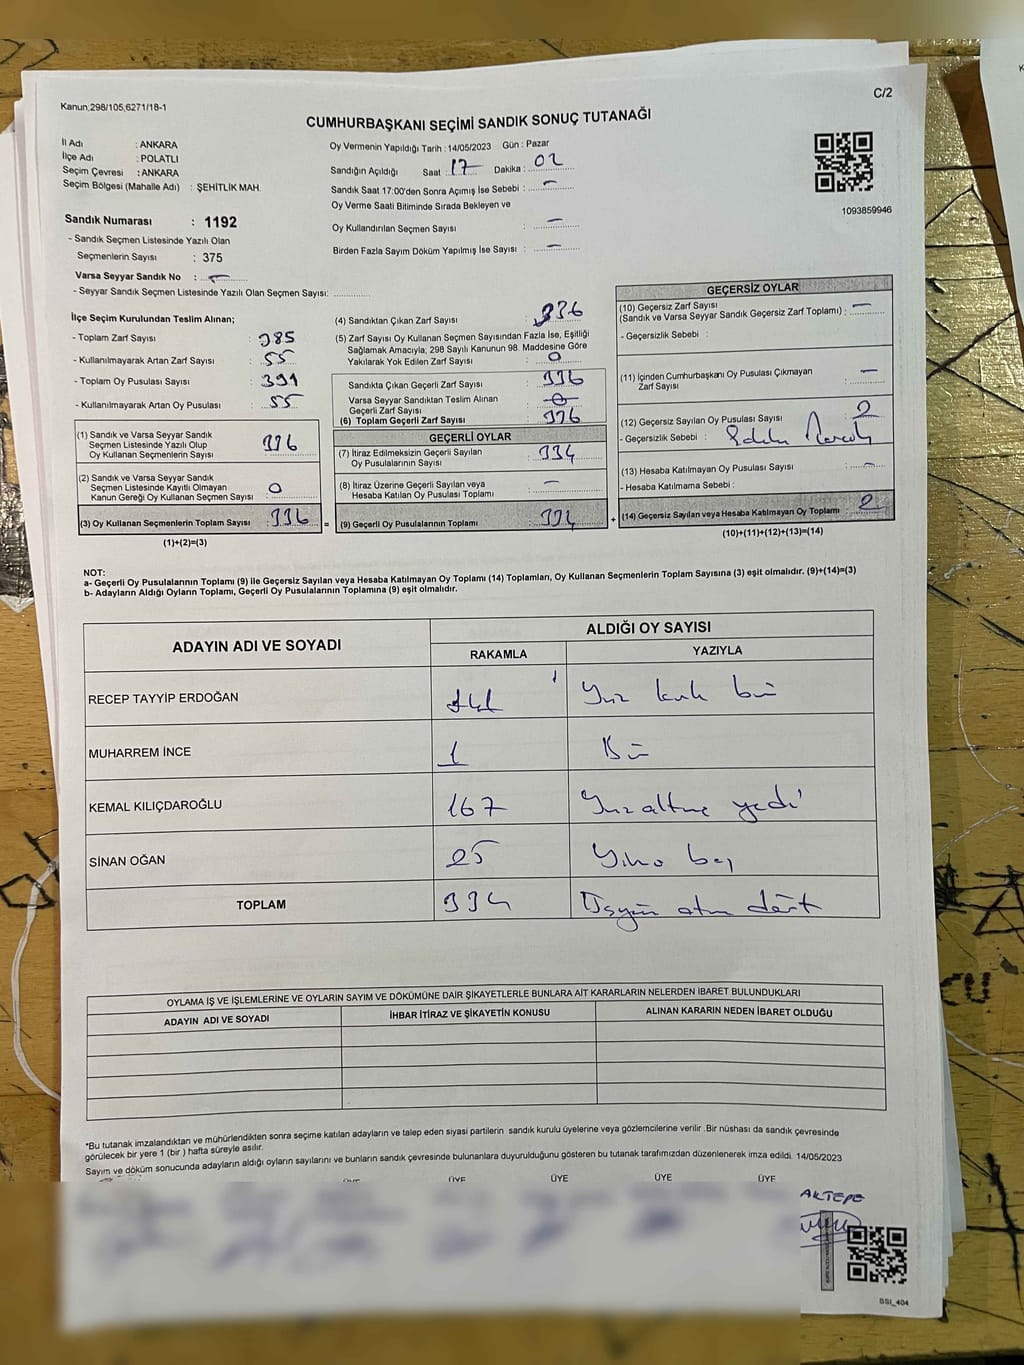 Kanun;298/105,6271/18-1
C/2
CUMHURBAŞKANI SEÇİMİ SANDIK SONUÇ TUTANAĞI
İl Adı : ANKARA
İlçe Adı : POLATLI
Seçim Çevresi : ANKARA
Seçim Bölgesi (Mahalle Adı) : ŞEHİTLİK MAH.
Oy Vermenin Yapıldığı Tarih : 14/05/2023 Gün : Pazar
Sandığın Açıldığı Saat : 17 Dakika : 02
Sandık Saat 17:00'den Sonra Açımış İse Sebebi : —
Oy Verme Saati Bitiminde Sırada Bekleyen ve
Oy Kullandırılan Seçmen Sayısı : —
Birden Fazla Sayım Döküm Yapılmış İse Sayısı : —
1093859946
Sandık Numarası : 1192
- Sandık Seçmen Listesinde Yazılı Olan
Seçmenlerin Sayısı : 375
Varsa Seyyar Sandık No : —
- Seyyar Sandık Seçmen Listesinde Yazılı Olan Seçmen Sayısı:
İlçe Seçim Kurulundan Teslim Alınan;
- Toplam Zarf Sayısı : 385
- Kullanılmayarak Artan Zarf Sayısı : 55
- Toplam Oy Pusulası Sayısı : 391
- Kullanılmayarak Artan Oy Pusulası : 55
(1) Sandık ve Varsa Seyyar Sandık
Seçmen Listesinde Yazılı Olup
Oy Kullanan Seçmenlerin Sayısı : 336
(2) Sandık ve Varsa Seyyar Sandık
Seçmen Listesinde Kayıtlı Olmayan
Kanun Gereği Oy Kullanan Seçmen Sayısı : 0
(3) Oy Kullanan Seçmenlerin Toplam Sayısı : 336 =
(1)+(2)=(3)
(4) Sandıktan Çıkan Zarf Sayısı : 336
(5) Zarf Sayısı Oy Kullanan Seçmen Sayısından Fazla İse, Eşitliği
Sağlamak Amacıyla, 298 Sayılı Kanunun 98. Maddesine Göre
Yakılarak Yok Edilen Zarf Sayısı : 0
Sandıkta Çıkan Geçerli Zarf Sayısı : 336
Varsa Seyyar Sandıktan Teslim Alınan
Geçerli Zarf Sayısı : 0
(6) Toplam Geçerli Zarf Sayısı : 336
GEÇERLİ OYLAR
(7) İtiraz Edilmeksizin Geçerli Sayılan
Oy Pusulalarının Sayısı : 334
(8) İtiraz Üzerine Geçerli Sayılan veya
Hesaba Katılan Oy Pusulası Toplamı : —
(9) Geçerli Oy Pusulalarının Toplamı : 334 +
GEÇERSİZ OYLAR
(10) Geçersiz Zarf Sayısı
(Sandık ve Varsa Seyyar Sandık Geçersiz Zarf Toplamı) : —
- Geçersizlik Sebebi :
(11) İçinden Cumhurbaşkanı Oy Pusulası Çıkmayan
Zarf Sayısı : —
(12) Geçersiz Sayılan Oy Pusulası Sayısı : 2
- Geçersizlik Sebebi :
(13) Hesaba Katılmayan Oy Pusulası Sayısı : —
- Hesaba Katılmama Sebebi :
(14) Geçersiz Sayılan veya Hesaba Katılmayan Oy Toplamı : 2
(10)+(11)+(12)+(13)=(14)
NOT:
a- Geçerli Oy Pusulalarının Toplamı (9) ile Geçersiz Sayılan veya Hesaba Katılmayan Oy Toplamı (14) Toplamları, Oy Kullanan Seçmenlerin Toplam Sayısına (3) eşit olmalıdır. (9)+(14)=(3)
b- Adayların Aldığı Oyların Toplamı, Geçerli Oy Pusulalarının Toplamına (9) eşit olmalıdır.
ADAYIN ADI VE SOYADI
ALDIĞI OY SAYISI
RAKAMLA YAZIYLA
RECEP TAYYİP ERDOĞAN 141 Yüz kırk bir
MUHARREM İNCE 1 Bir
KEMAL KILIÇDAROĞLU 167 Yüzaltmış yedi
SİNAN OĞAN 25 Yirmi beş
TOPLAM 334 Üçyüz otuz dört
OYLAMA İŞ VE İŞLEMLERİNE VE OYLARIN SAYIM VE DÖKÜMÜNE DAİR ŞİKAYETLERLE BUNLARA AİT KARARLARIN NELERDEN İBARET BULUNDUKLARI
ADAYIN ADI VE SOYADI İHBAR İTİRAZ VE ŞİKAYETİN KONUSU ALINAN KARARIN NEDEN İBARET OLDUĞU
*Bu tutanak imzalandıktan ve mühürlendikten sonra seçime katılan adayların ve talep eden siyasi partilerin sandık kurulu üyelerine veya gözlemcilerine verilir .Bir nüshası da sandık çevresinde
görülecek bir yere 1 (bir ) hafta süreyle asılır.
Sayım ve döküm sonucunda adayların aldığı oyların sayılarını ve bunların sandık çevresinde bulunanlara duyurulduğunu gösteren bu tutanak tarafımızdan düzenlenerek imza edildi. 14/05/2023
ÜYE ÜYE ÜYE ÜYE ÜYE
AKTEPE
BSI_404